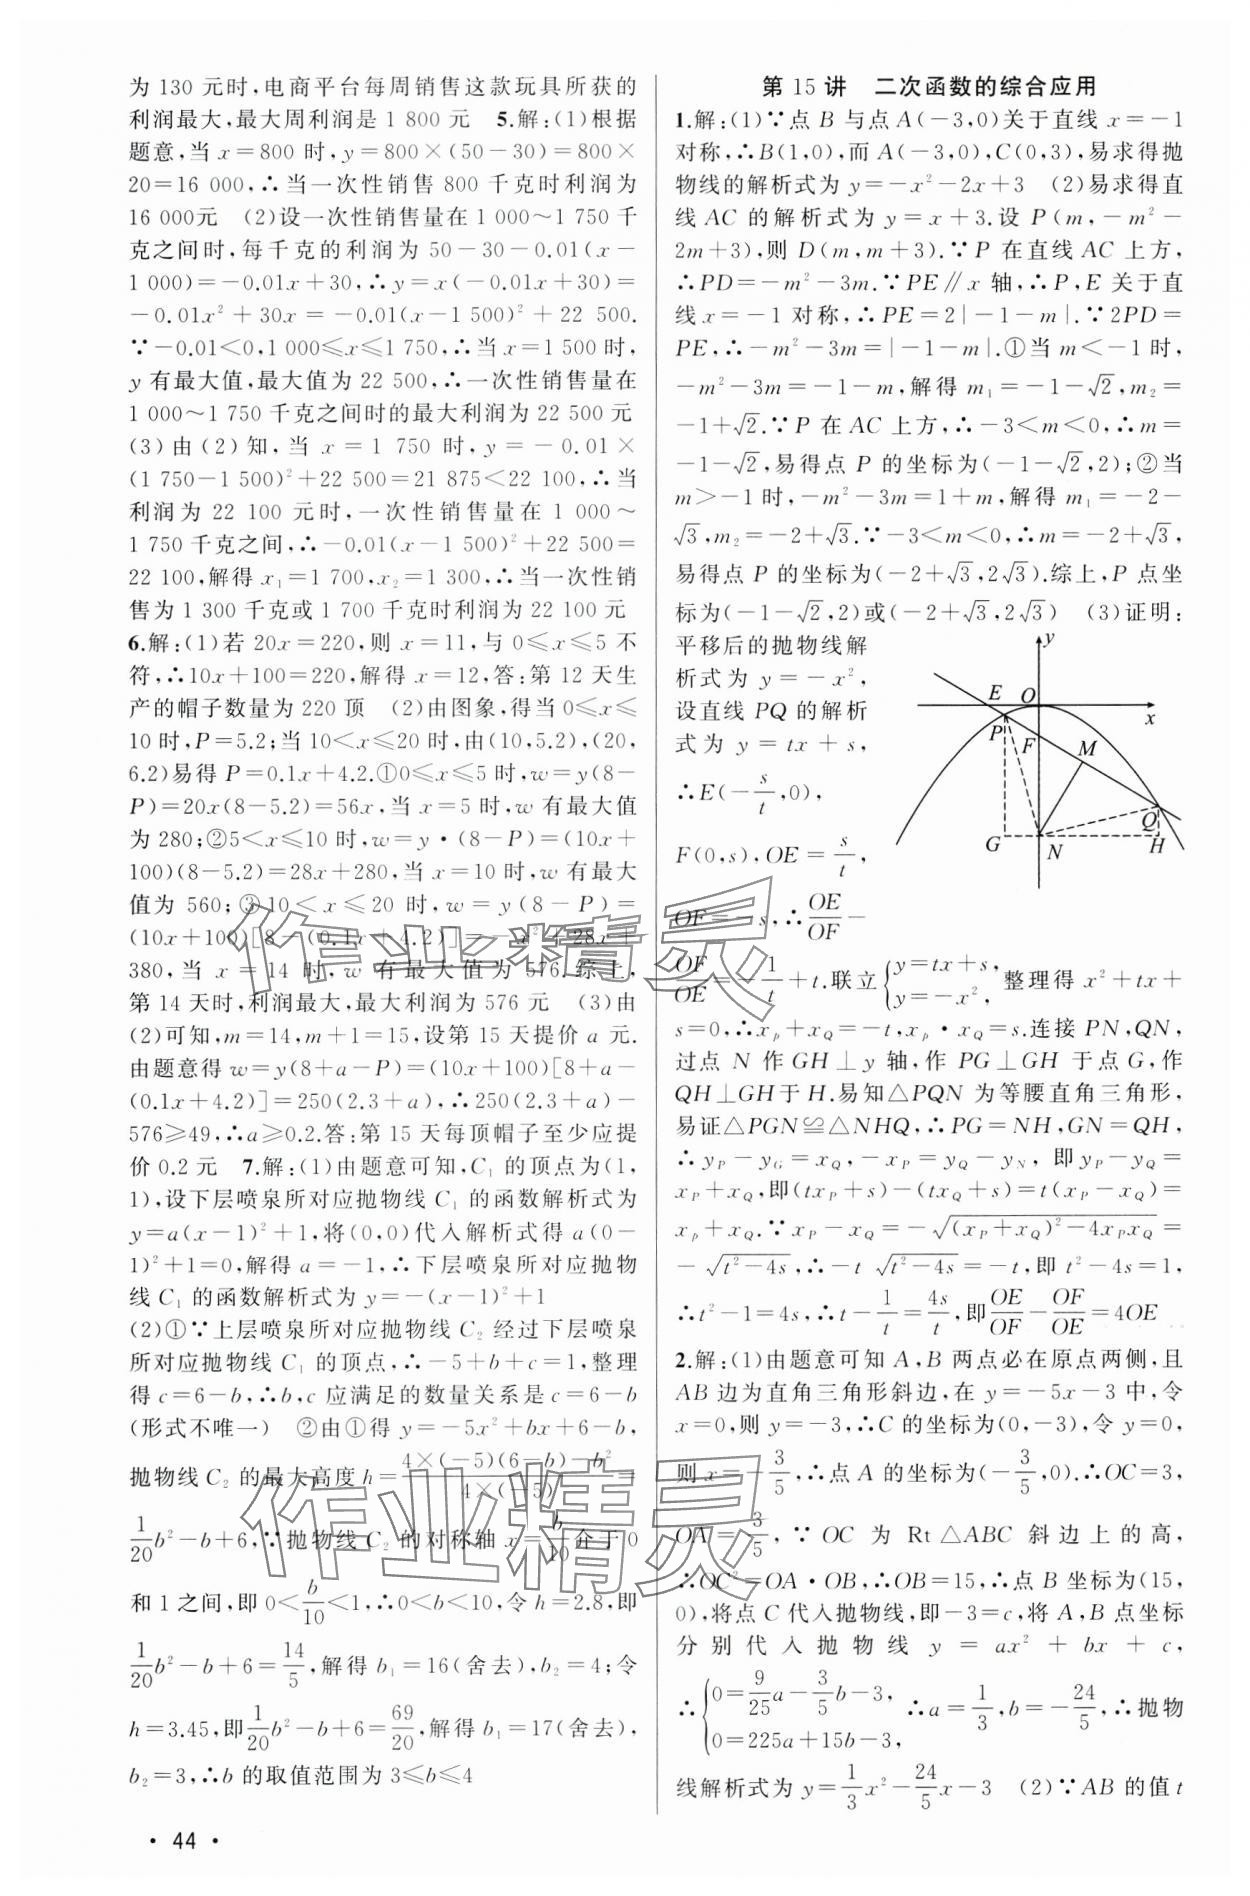 为 130 元时,电商平台每周销售这款玩具所获的
利润最大,最大周利润是 1 800 元　5.解:(1)根据
题意,当 x=800 时,y=800×(50-30)=800×
20=16 000,∴当一次性销售 800 千克时利润为
16 000元　(2)设一次性销售量在 1 000~1 750 千
克之间时,每千克的利润为 50-30-0.01(x-
1 000)=-0.01x+30,∴y=x(-0.01x+30)=
-0.01x²+30x=-0.01(x-1 500)²+22 500.
∵-0.01<0,1 000≤x≤1 750,∴当 x=1 500 时,
y 有最大值,最大值为 22 500,∴一次性销售量在
1 000~1 750 千克之间时的最大利润为 22 500 元
(3)由(2)知,当 x=1 750 时,y=-0.01×
(1 750-1 500)²+22 500=21 875<22 100,∴当
利润为 22 100 元时,一次性销售量在 1 000~
1 750 千克之间,∴-0.01(x-1 500)²+22 500=
22 100,解得 x₁=1 700,x₂=1 300,∴当一次性销
售为 1 300 千克或 1 700 千克时利润为 22 100 元
6.解:(1)若 20x=220,则 x=11,与 0≤x≤5 不
符,∴10x+100=220,解得 x=12,答:第 12 天生
产的帽子数量为 220 顶　(2)由图象,得当 0≤x≤
10 时,P=5.2;当 10<x≤20 时,由(10,5.2),(20,
6.2)易得 P=0.1x+4.2.①0≤x≤5 时,w=y(8-
P)=20x(8-5.2)=56x,当 x=5 时,w 有最大值
为 280;②5<x≤10 时,w=y·(8-P)=(10x+
100)(8-5.2)=28x+280,当 x=10 时,w有最大
值为 560;③10<x≤20 时,w=y(8-P)=
(10x+100)[8-(0.1x+4.2)]=-x²+28x+
380,当 x=14 时,w 有最大值为 576.综上,
第 14 天时,利润最大,最大利润为 576 元　(3)由
(2)可知,m=14,m+1=15,设第 15 天提价 a 元.
由题意得 w=y(8+a-P)=(10x+100)[8+a-
(0.1x+4.2)]=250(2.3+a),∴250(2.3+a)-
576≥49,∴a≥0.2.答:第 15 天每顶帽子至少应提
价 0.2 元　7.解:(1)由题意可知,C₁ 的顶点为(1,
1),设下层喷泉所对应抛物线 C₁ 的函数解析式为
y=a(x-1)²+1,将(0,0)代入解析式得 a(0-
1)²+1=0,解得 a=-1,∴下层喷泉所对应抛物
线 C₁ 的函数解析式为 y=-(x-1)²+1
(2)①∵上层喷泉所对应抛物线 C₂ 经过下层喷泉
所对应抛物线 C₁ 的顶点,∴-5+b+c=1,整理
得 c=6-b,∴b,c 应满足的数量关系是 c=6-b
(形式不唯一)　②由①得 y=-5x²+bx+6-b,
抛物线 C₂ 的最大高度 h=4×(-5)(6-b)-b²/4×(-5)=
1/20b²-b+6,∵抛物线 C₂ 的对称轴 x=b/10介于 0
和 1 之间,即 0<b/10<1,∴0<b<10,令 h=2.8,即
1/20b²-b+6=14/5,解得 b₁=16(舍去),b₂=4;令
h=3.45,即1/20b²-b+6=69/20,解得 b₁=17(舍去),
b₂=3,∴b 的取值范围为 3≤b≤4
第 15 讲　二次函数的综合应用
1.解:(1)∵点 B 与点 A(-3,0)关于直线 x=-1
对称,∴B(1,0),而 A(-3,0),C(0,3),易求得抛
物线的解析式为 y=-x²-2x+3　(2)易求得直
线 AC 的解析式为 y=x+3.设 P(m,-m²-
2m+3),则 D(m,m+3).∵P 在直线 AC 上方,
∴PD=-m²-3m.∵PE∥x 轴,∴P,E 关于直
线 x=-1 对称,∴PE=2|-1-m|.∵2PD=
PE,∴-m²-3m=|-1-m|.①当 m<-1 时,
-m²-3m=-1-m,解得 m₁=-1-√2,m₂=
-1+√2.∵P 在 AC 上方,∴-3<m<0,∴m=
-1-√2,易得点 P 的坐标为(-1-√2,2);②当
m>-1 时,-m²-3m=1+m,解得 m₁=-2-
√3,m₂=-2+√3.∵-3<m<0,∴m=-2+√3,
易得点 P 的坐标为(-2+√3,2√3).综上,P 点坐
标为(-1-√2,2)或(-2+√3,2√3)　(3)证明:
平移后的抛物线解
析式为 y=-x²,
设直线 PQ 的解析
式为 y=tx+s,
∴E(-s/t,0),
F(0,s),OE=s/t,
OF=-s,∴OE/OF-
OF/OE=-1/t+t.联立{y=tx+s,y=-x²,整理得 x²+tx+
s=0,∴xₚ+x_Q=-t,xₚ·x_Q=s.连接 PN,QN,
过点 N 作 GH⊥y 轴,作 PG⊥GH 于点 G,作
QH⊥GH于 H.易知△PQN 为等腰直角三角形,
易证△PGN≌△NHQ,∴PG=NH,GN=QH,
∴y_P-y_G=x_Q,-x_P=y_Q-y_N, 即y_P-y_Q=
x_P+x_Q,即(tx_P+s)-(tx_Q+s)=t(x_P-x_Q)=
xₚ+x_Q.∵x_P-x_Q=-√(x_P+x_Q)²-4x_Px_Q=
-√t²-4s,∴-t √t²-4s=-t,即 t²-4s=1,
∴t²-1=4s,∴t-1/t=4s/t,即OE/OF-OF/OE=4OE
2.解:(1)由题意可知 A,B 两点必在原点两侧,且
AB 边为直角三角形斜边,在 y=-5x-3 中,令
x=0,则 y=-3,∴C 的坐标为(0,-3),令 y=0,
则 x=-3/5,∴点 A 的坐标为(-3/5,0).∴OC=3,
OA=3/5,∵OC 为 Rt△ABC 斜边上的高,
∴OC²=OA·OB,∴OB=15,∴点 B 坐标为(15,
0),将点 C 代入抛物线,即-3=c,将 A,B 点坐标
分别代入抛物线 y=ax²+bx+c,
∴{0=9/25a-3/5b-3,0=225a+15b-3,∴a=1/3,b=-24/5,∴抛物
线解析式为 y=1/3x²-24/5x-3　(2)∵AB 的值 t
y
E O x
P F M
Q
G N H
作业精灵
作业精灵
· 44 ·